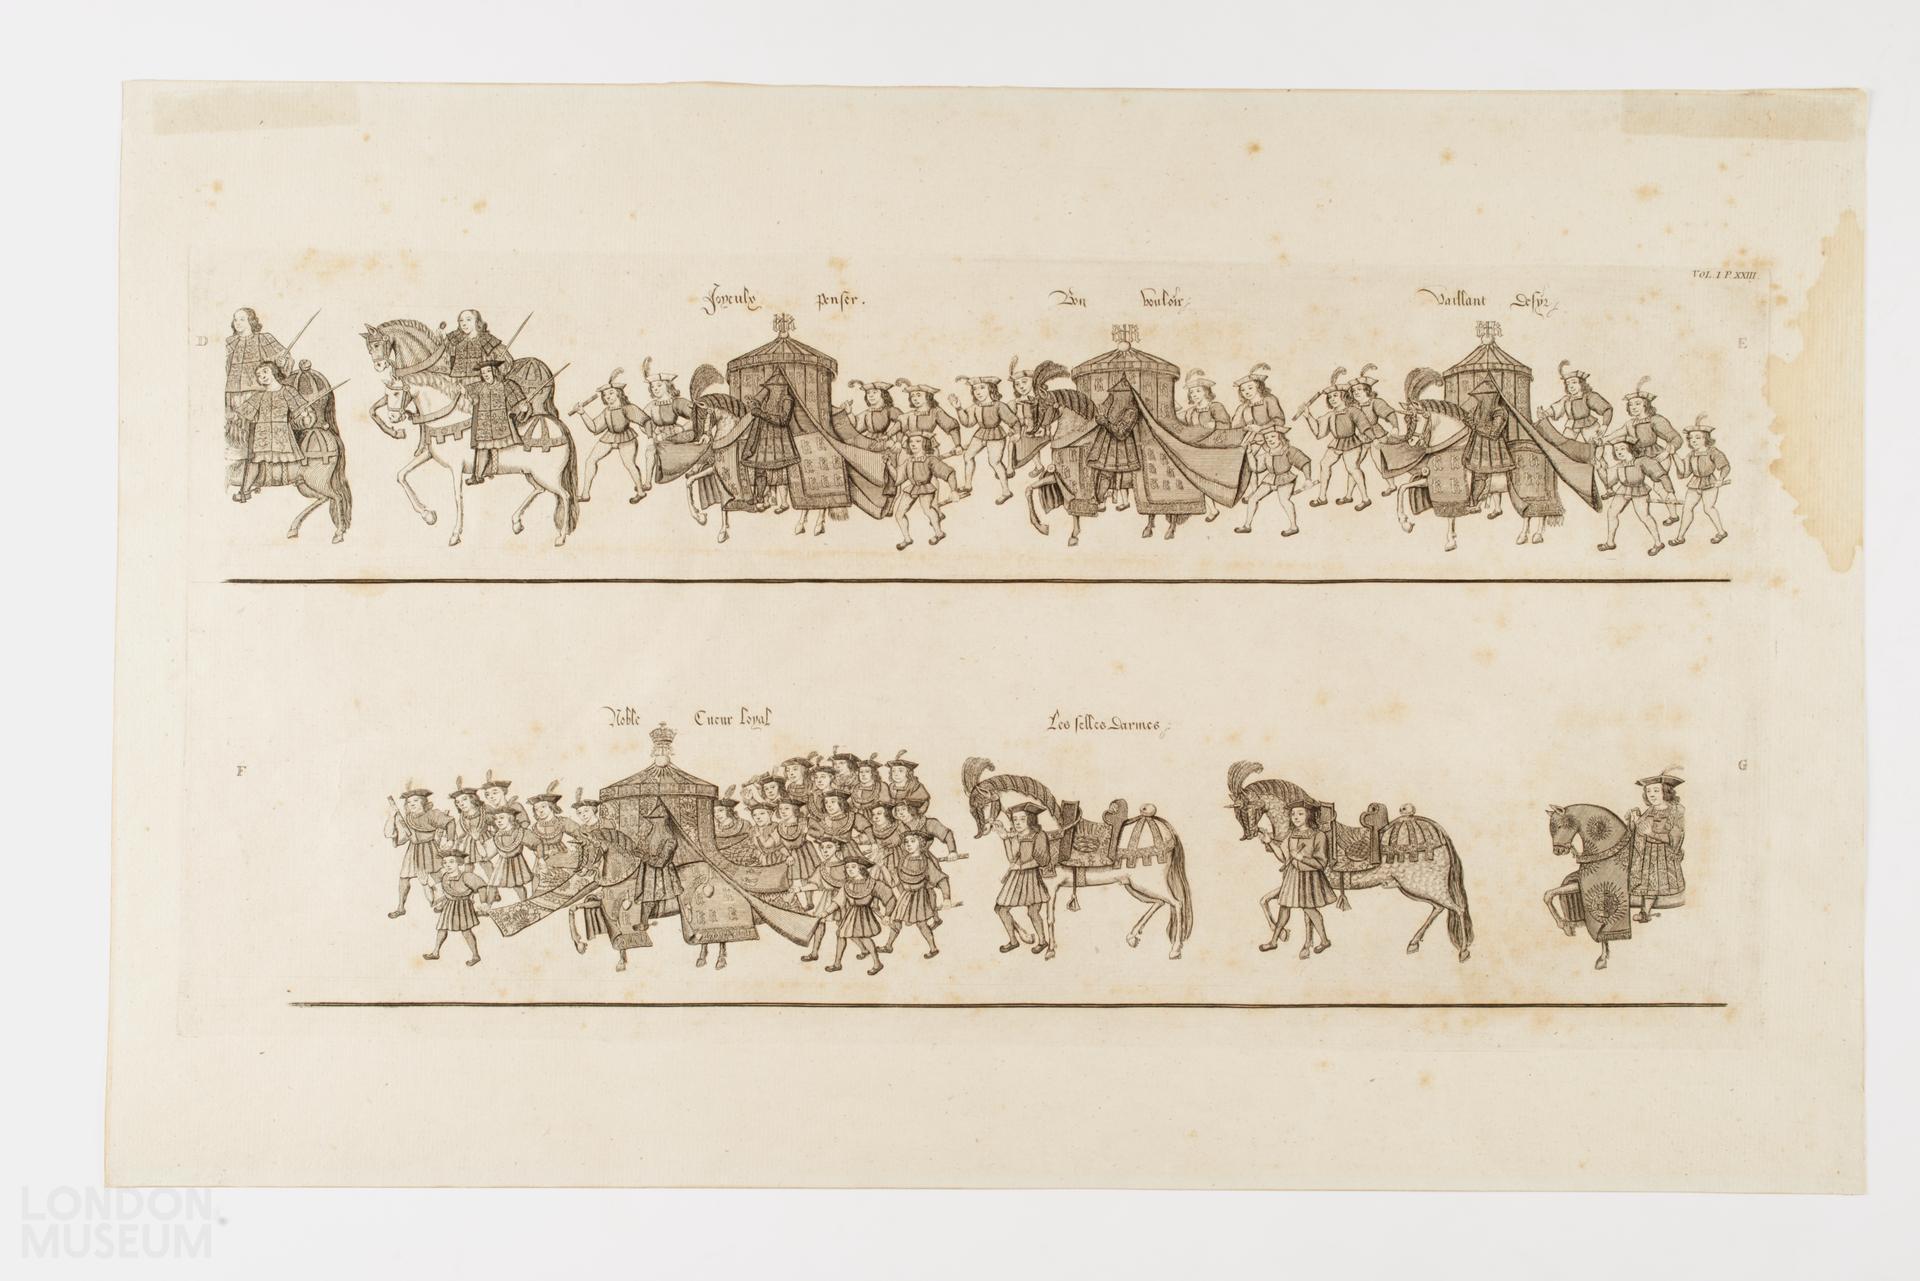 VOL. I P. XXIII.
Joyeulx penser.
Bon vouloir
Vaillant desyr
D
E
Noble Cueur loyal
Les selles Darmes
F
G
LONDON
MUSEUM